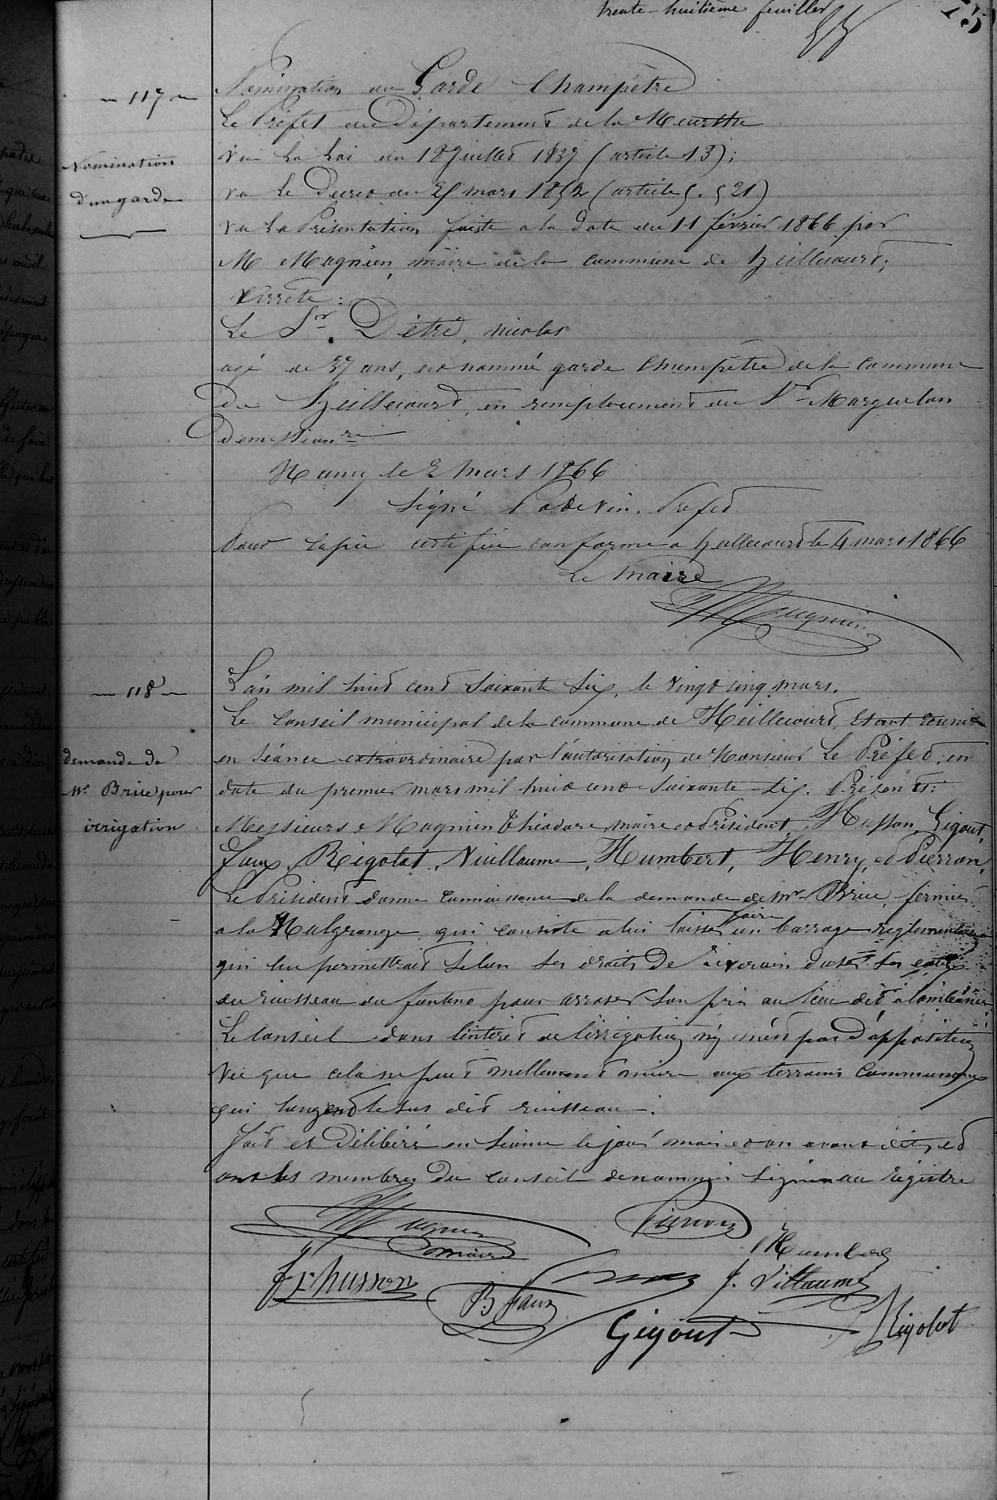 trente-huitième feuillet
75
— 117 —
Nomination
d'un garde
Nomination du Garde Champêtre
Le Préfet du Département de la Meurthe
vu la Loi du 18 juillet 1837 (article 13);
vu le Decret du 25 mars 1852 (article 5. § 21)
vu la Présentation faite a la date du 11 février 1866 par
M Magnien, maire de la commune de heillecourt;
Arrête:
Le Sr. Détré, nicolas
agé de 37 ans, est nommé garde Champêtre de la commune
De heillecourt, en remplacement du Sr Marquelon
Demissionre
Nancy le 2 mars 1866
Signé Podevin. Prefet
Pour copie certifiée conforme a heillecourt le 4 mars 1866
Le Maire
Magnien
— 118 —
demande de
Mr. Brice pour
irrigation
L'an mil huit cent Soixante Six, le vingt cinq mars.
Le Conseil municipal de la commune de Heillecourt, étant reunis
en Séance extraordinaire par l'autorisation de Monsieur Le Préfet, en
date du premier mars mil huit cent Soixante-Six. Présents:
Messieurs Magnien Théodore, maire et Président, Husson, Gigout,
Faux, Rigolot, Vuillaume, Humbert, Henry, et Pierron,
Le Président donne connaissance de la demande de Mr Brice, fermier
a la Malgrange, qui consiste a lui laisser faire un barrage réglementaire
qui lui permettrait selon ses droits de riverain d'user les eaux
du ruisseau du fonteno pour arroser Son pré au lieu dit a
Le Conseil dans l'intérêt de l'irrigation n'y met pas d'opposition
Vu que cela ne peut nullement nuire aux terrains communaux
qui longent le sus dit ruisseau.
Fait et Délibéré en Séance le jour mois et an avant dits, et
ont les membres Du Conseil dénommés Signé au régistre
Magnien
maire
Pierron
Humbert
Husson
B Faux
J. Villaume
Gigout
Rigolot